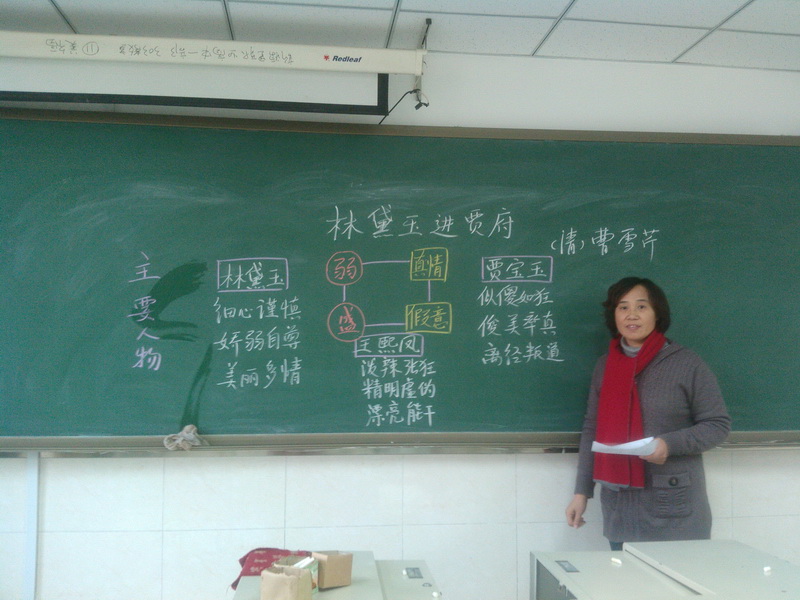 Redleaf
林黛玉进贾府
(清)曹雪芹
主要人物
林黛玉
细心谨慎
娇弱自尊
美丽多情
弱
真情
盛
假意
王熙凤
泼辣张狂
精明虚伪
漂亮能干
贾宝玉
似傻如狂
俊美率真
离经叛道